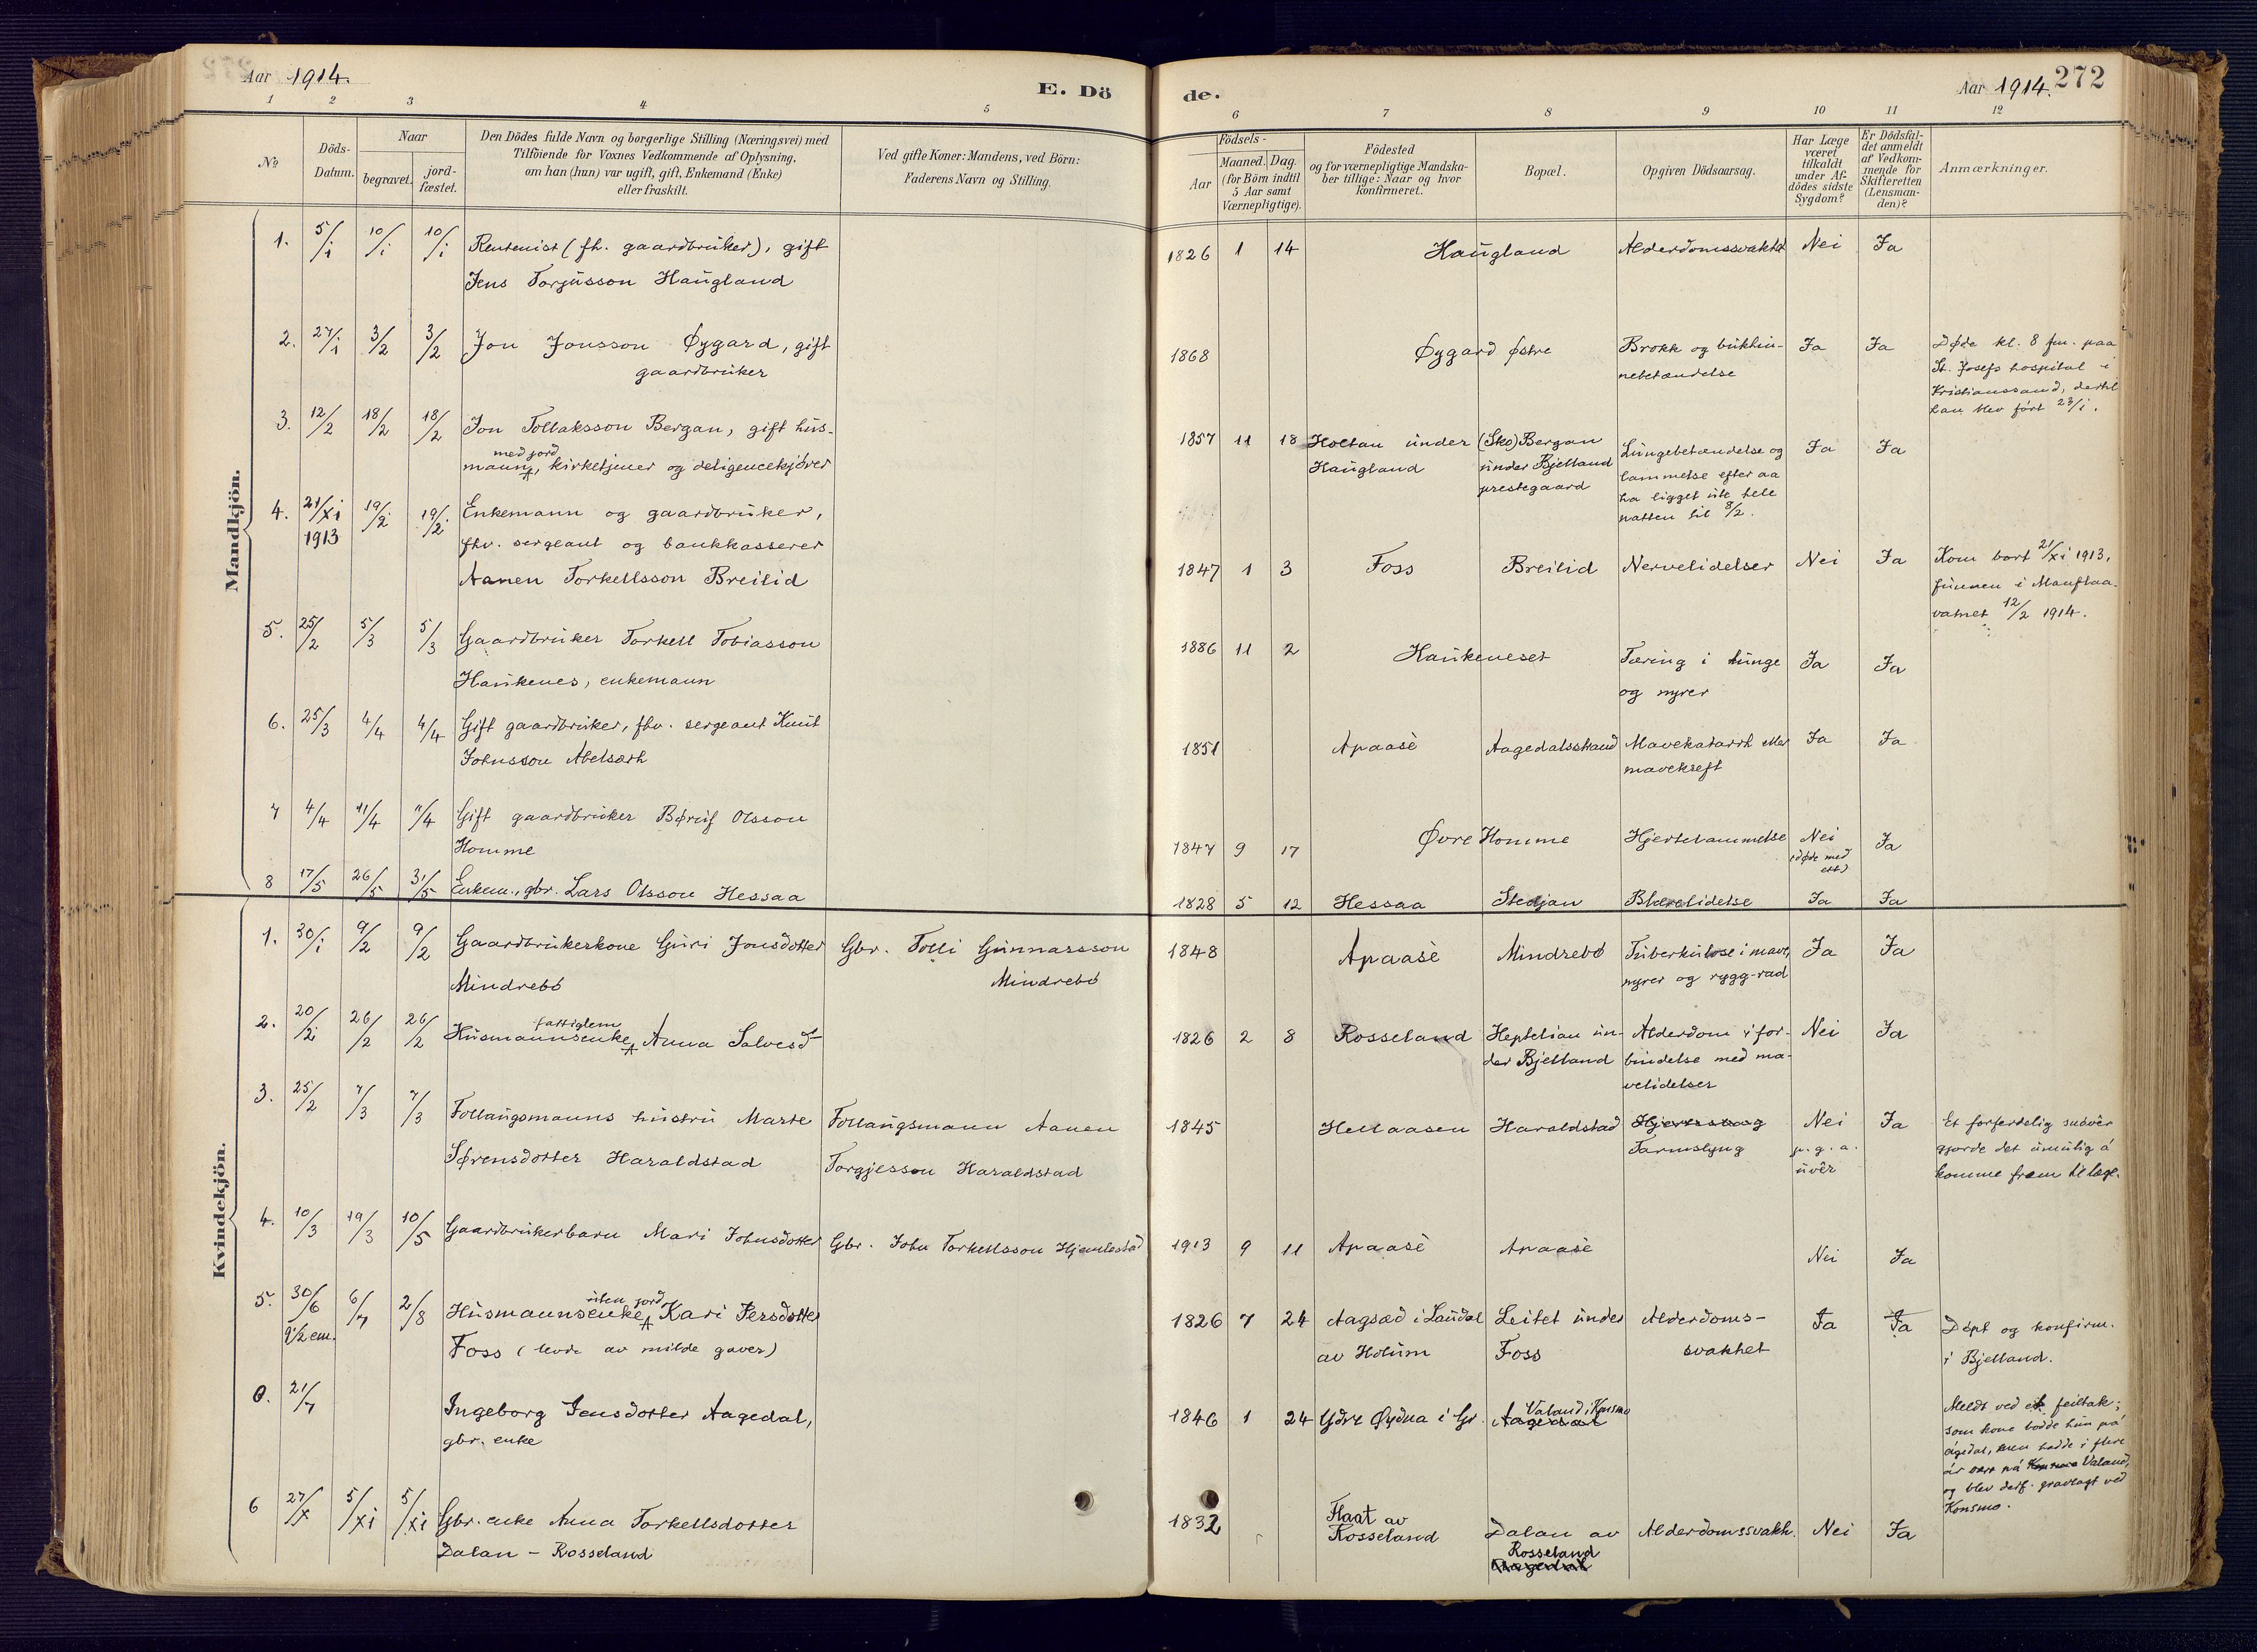 Aar 1914.
E. Dö
de.
Aar 1914. 272
1 2 3 4 5 6 7 8 9 10 11 12
No
Döds-
Datum.
Naar
begravet.
jord-
fæstet.
Den Dödes fulde Navn og borgerlige Stilling (Næringsvei) med
Tilföiende for Voxnes Vedkommende af Oplysning,
om han (hun) var ugift, gift, Enkemand (Enke)
eller fraskilt.
Ved gifte Koner: Mandens, ved Börn:
Faderens Navn og Stilling.
Födsels-
Aar
Maaned. Dag.
(for Börn indtil
5 Aar samt
Værnepligtige).
Födested
og for værnepligtige Mandska-
ber tillige: Naar og hvor
konfirmeret.
Bopæl.
Opgiven Dödsaarsag.
Har Læge
været
tilkaldt
under Af-
dödes sidste
Sygdom?
Er Dödsfal-
det anmeldt
af Vedkom-
mende for
Skifteretten
(Lensman-
den)?
Anmærkninger.
Mandkjön.
1. 5/1 10/1 10/1 Rentenist (fh. gaardbruker), gift
Jens Torjusson Haugland
1826 1 14 Haugland Alderdomssvakhet Nei Ja
2. 27/1 3/2 3/2 Jon Jonsson Øygard, gift
gaardbruker
1868 Øygard østre Brokk og bukhin-
nebetændelse
Ja Ja
Døde kl. 8 fm. paa
St. Josefs hospital i
Kristianssand, dertil
han blev ført 23/1.
3. 12/2 18/2 18/2 Jon Tollaksson Bergan, gift hus-
med jord
mann, kirketjener og deligencekjører
1857 11 18 Holtan under
Haugland
(Sko) Bergan
under Bjelland
prestegaard
Lungebetændelse og
lammelse efter aa
ha ligget ute hele
natten til 8/2.
Ja Ja
4. 21/xi 1913 19/2 19/2 Enkemann og gaardbruker,
fhv. sergeant og bankkasserer
Aanen Torkellsson Breilid
1847 1 3 Foss Breilid Nervelidelser Nei Ja
Kom bort 21/xi 1913,
funnen i Manflaa-
vatnet 12/2 1914.
5. 25/2 5/3 5/3 Gaardbruker Torkell Tobiasson
Haukenes, enkemann
1886 11 2 Haukeneset Tæring i lunge
og nyrer
Ja Ja
6. 25/3 4/4 4/4 Gift gaardbruker, fhv. sergeant Knut
Johnsson Abelsæth
1851 Apaasè Aagedalsstrand Mavekatarrh eller
mavekreft
Ja Ja
7 4/4 11/4 11/4 Gift gaardbruker Børuf Olsson
Homme
1847 9 17 Øvre Homme Hjertelammelse Nei
(døde med
ett)
Ja
8 17/5 26/5 31/5 Enkem., gbr. Lars Olsson Hessaa
1828 5 12 Hessaa Stedjan Blærelidelse Ja Ja
Kvindekjön.
1. 30/1 9/2 9/2 Gaardbrukerkone Guri Jonsdotter
Mindrebö
Gbr. Tolli Gunnarsson
Mindrebö
1848 Apaasè Mindrebö Tuberkulose i mave,
nyrer og rygg-rad
Ja Ja
2. 20/2 26/2 26/2 Husmannsenke fattiglem Anna Salvesd
1826 2 8 Rosseland Heptelian un-
der Bjelland
Alderdom i for-
bindelse med ma-
velidelser
Nei Ja
3. 25/2 7/3 7/3 Follaugsmanns hustru Marte
Sørensdotter Haraldstad
Follaugsmann Aanen
Torgjesson Haraldstad
1845 Hellaasen Haraldstad
Tarmslyng
Nei
p. g. a.
uvêr
Ja
Et forferdelig snövêr
gjorde det umulig å
komme frem til læge.
4. 10/3 19/3 10/5 Gaardbrukerbarn Mari Johnsdotter
Gbr. John Torkellsson Hjemlestad
1913 9 11 Apaasè Apaasè Nei Ja
5. 30/6 9½ em. 6/7 2/8 Husmannsenke uten jord Kari Persdotter
Foss (levde av milde gaver)
1826 7 24 Aagsæd i Laudal
av Holum
Leitet under
Foss
Alderdoms-
svakhet
Ja Ja
Döpt og konfirm.
i Bjelland.
0. 21/7 Ingeborg Jensdotter Aagedal,
gbr. enke
1846 1 24 Ydre Øydna i Gr. Aagedal Valand i Konsmo
Meldt ved et feiltak;
som kone bodde hun på
Ågedal, men hadde i flere
år vært på Konsmo Valand,
og blev derf. gravlagt ved
Konsmo.
6 27/x 5/xi 5/xi Gbr. enke Anna Torkellsdotter
Dalan - Rosseland
1832 Flaat av
Rosseland
Dalan av
Rosseland
Alderdomssvakh. Nei Ja